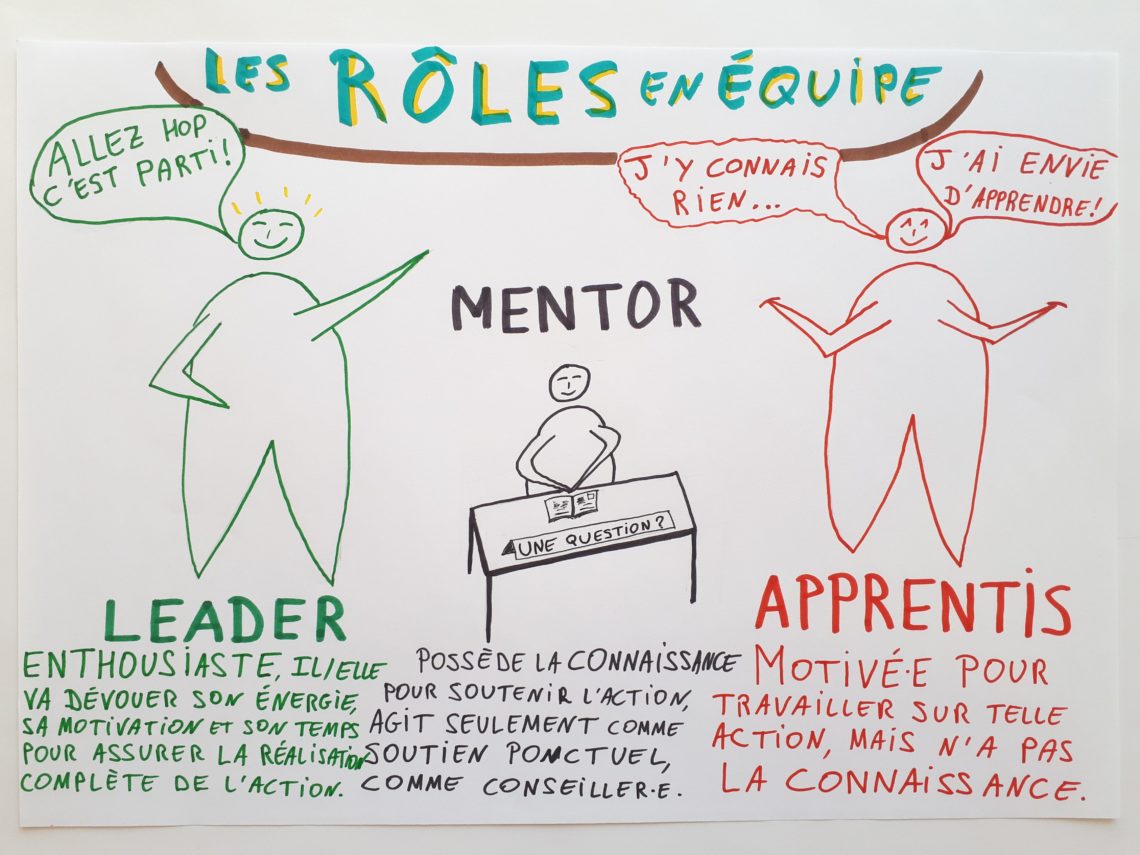 LES RÔLES EN ÉQUIPE
ALLEZ HOP
C'EST PARTI!
J'Y CONNAIS
RIEN...
J'AI ENVIE
D'APPRENDRE!
MENTOR
UNE QUESTION?
LEADER
ENTHOUSIASTE, IL/ELLE
VA DÉVOUER SON ÉNERGIE,
SA MOTIVATION ET SON TEMPS
POUR ASSURER LA RÉALISATION
COMPLÈTE DE L'ACTION.
POSSÈDE LA CONNAISSANCE
POUR SOUTENIR L'ACTION,
AGIT SEULEMENT COMME
SOUTIEN PONCTUEL,
COMME CONSEILLER·E.
APPRENTIS
MOTIVÉ·E POUR
TRAVAILLER SUR TELLE
ACTION, MAIS N'A PAS
LA CONNAISSANCE.